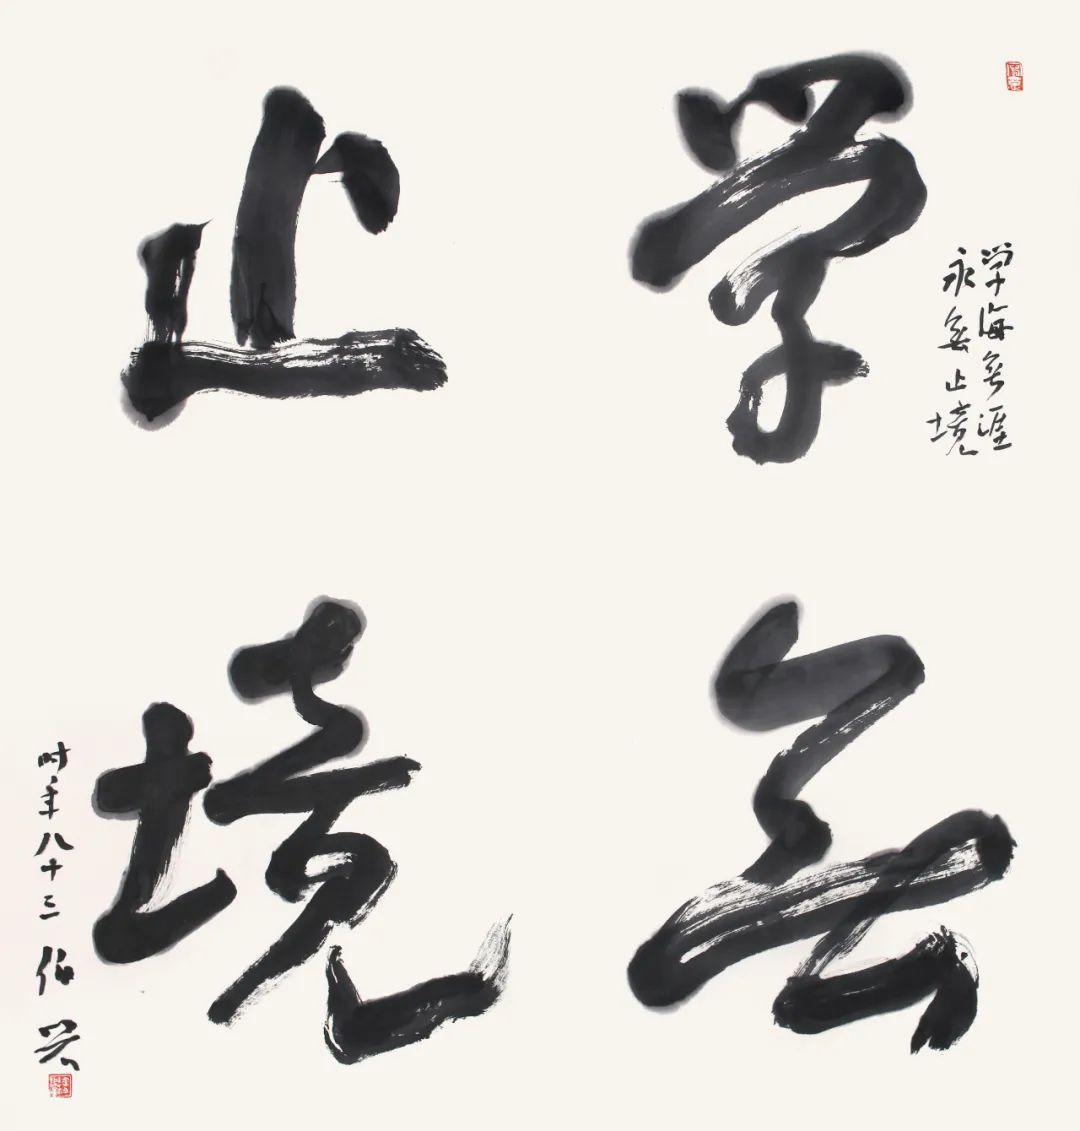 学无
止境
学海无涯
永无止境
时年八十三 伯兴